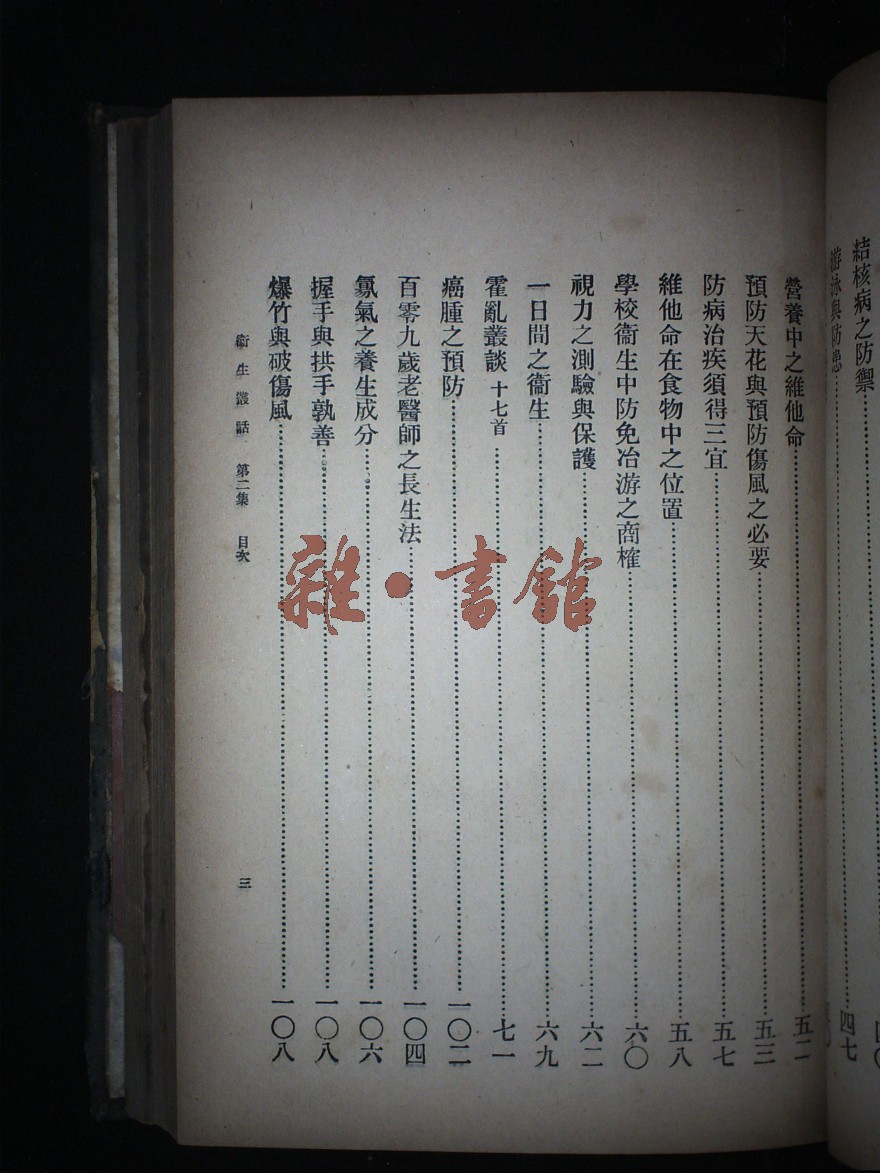 結核病之防禦
游泳與防患……四七
營養中之維他命……五二
預防天花與預防傷風之必要……五三
防病治疾須得三宜……五七
維他命在食物中之位置……五八
學校衞生中防免冶游之商榷……六〇
視力之測驗與保護……六二
一日間之衞生……六九
霍亂叢談 十七首……七一
癌腫之預防……一〇二
百零九歲老醫師之長生法……一〇四
氯氣之養生成分……一〇六
握手與拱手孰善……一〇八
爆竹與破傷風……一〇八
衞生叢話 第二集 目次 三
雜·書館